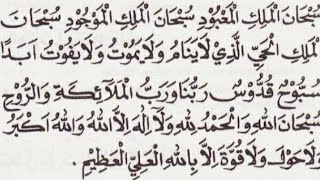 سُبْحَانَ الْمَلِكِ الْمَعْبُوْدِ سُبْحَانَ الْمَلِكِ الْمَوْجُوْدِ سُبْحَانَ
الْمَلِكِ الْحَيِّ الَّذِيْ لَايَنَامُ وَلَايَمُوْتُ وَلَايَفُوْتُ اَبَدًا
سُبُّوْحٌ قُدُّوْسٌ رَبُّنَا وَرَبُّ الْمَلَآئِكَةِ وَالرُّوْحِ
سُبْحَانَ اللهِ وَالْحَمْدُ لِلهِ وَلَآ اِلٰهَ اِلَّا اللهُ وَاللهُ اَكْبَرُ
وَلَاحَوْلَ وَلَاقُوَّةَ اِلَّا بِاللهِ الْعَلِيِّ الْعَظِيْمِ .